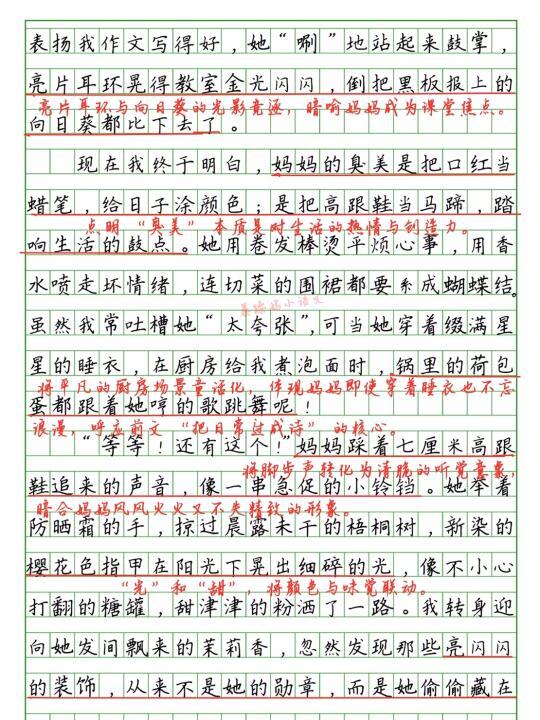 表扬我作文写得好，她“唰”地站起来鼓掌，
亮片耳环晃得教室金光闪闪，倒把黑板报上的
亮片耳环与向日葵的光影竞逐，暗喻妈妈成为课堂焦点。
向日葵都比下去了。
现在我终于明白，妈妈的臭美是把口红当
蜡笔，给日子涂颜色；是把高跟鞋当马蹄，踏
点明“臭美”本质是对生活的热情与创造力。
响生活的鼓点。她用卷发棒烫平烦心事，用香
水喷走坏情绪，连切菜的围裙都要系成蝴蝶结。
虽然我常吐槽她“太夸张”，可当她穿着缀满星
星的睡衣，在厨房给我煮泡面时，锅里的荷包
将平凡的厨房场景童话化，体现妈妈即使穿着睡衣也不忘
蛋都跟着她哼的歌跳舞呢！
浪漫，呼应前文“把日常过成诗”的核心。
“等等！还有这个！”妈妈踩着七厘米高跟
将脚步声转化为清脆的听觉意象，
鞋追来的声音，像一串急促的小铃铛。她举着
暗合妈妈风风火火又不失精致的形象。
防晒霜的手，掠过晨露未干的梧桐树，新染的
樱花色指甲在阳光下晃出细碎的光，像不小心
“光”和“甜”，将颜色与味觉联动。
打翻的糖罐，甜津津的粉洒了一路。我转身迎
向她发间飘来的茉莉香，忽然发现那些亮闪闪
的装饰，从来不是她的勋章，而是她偷偷藏在